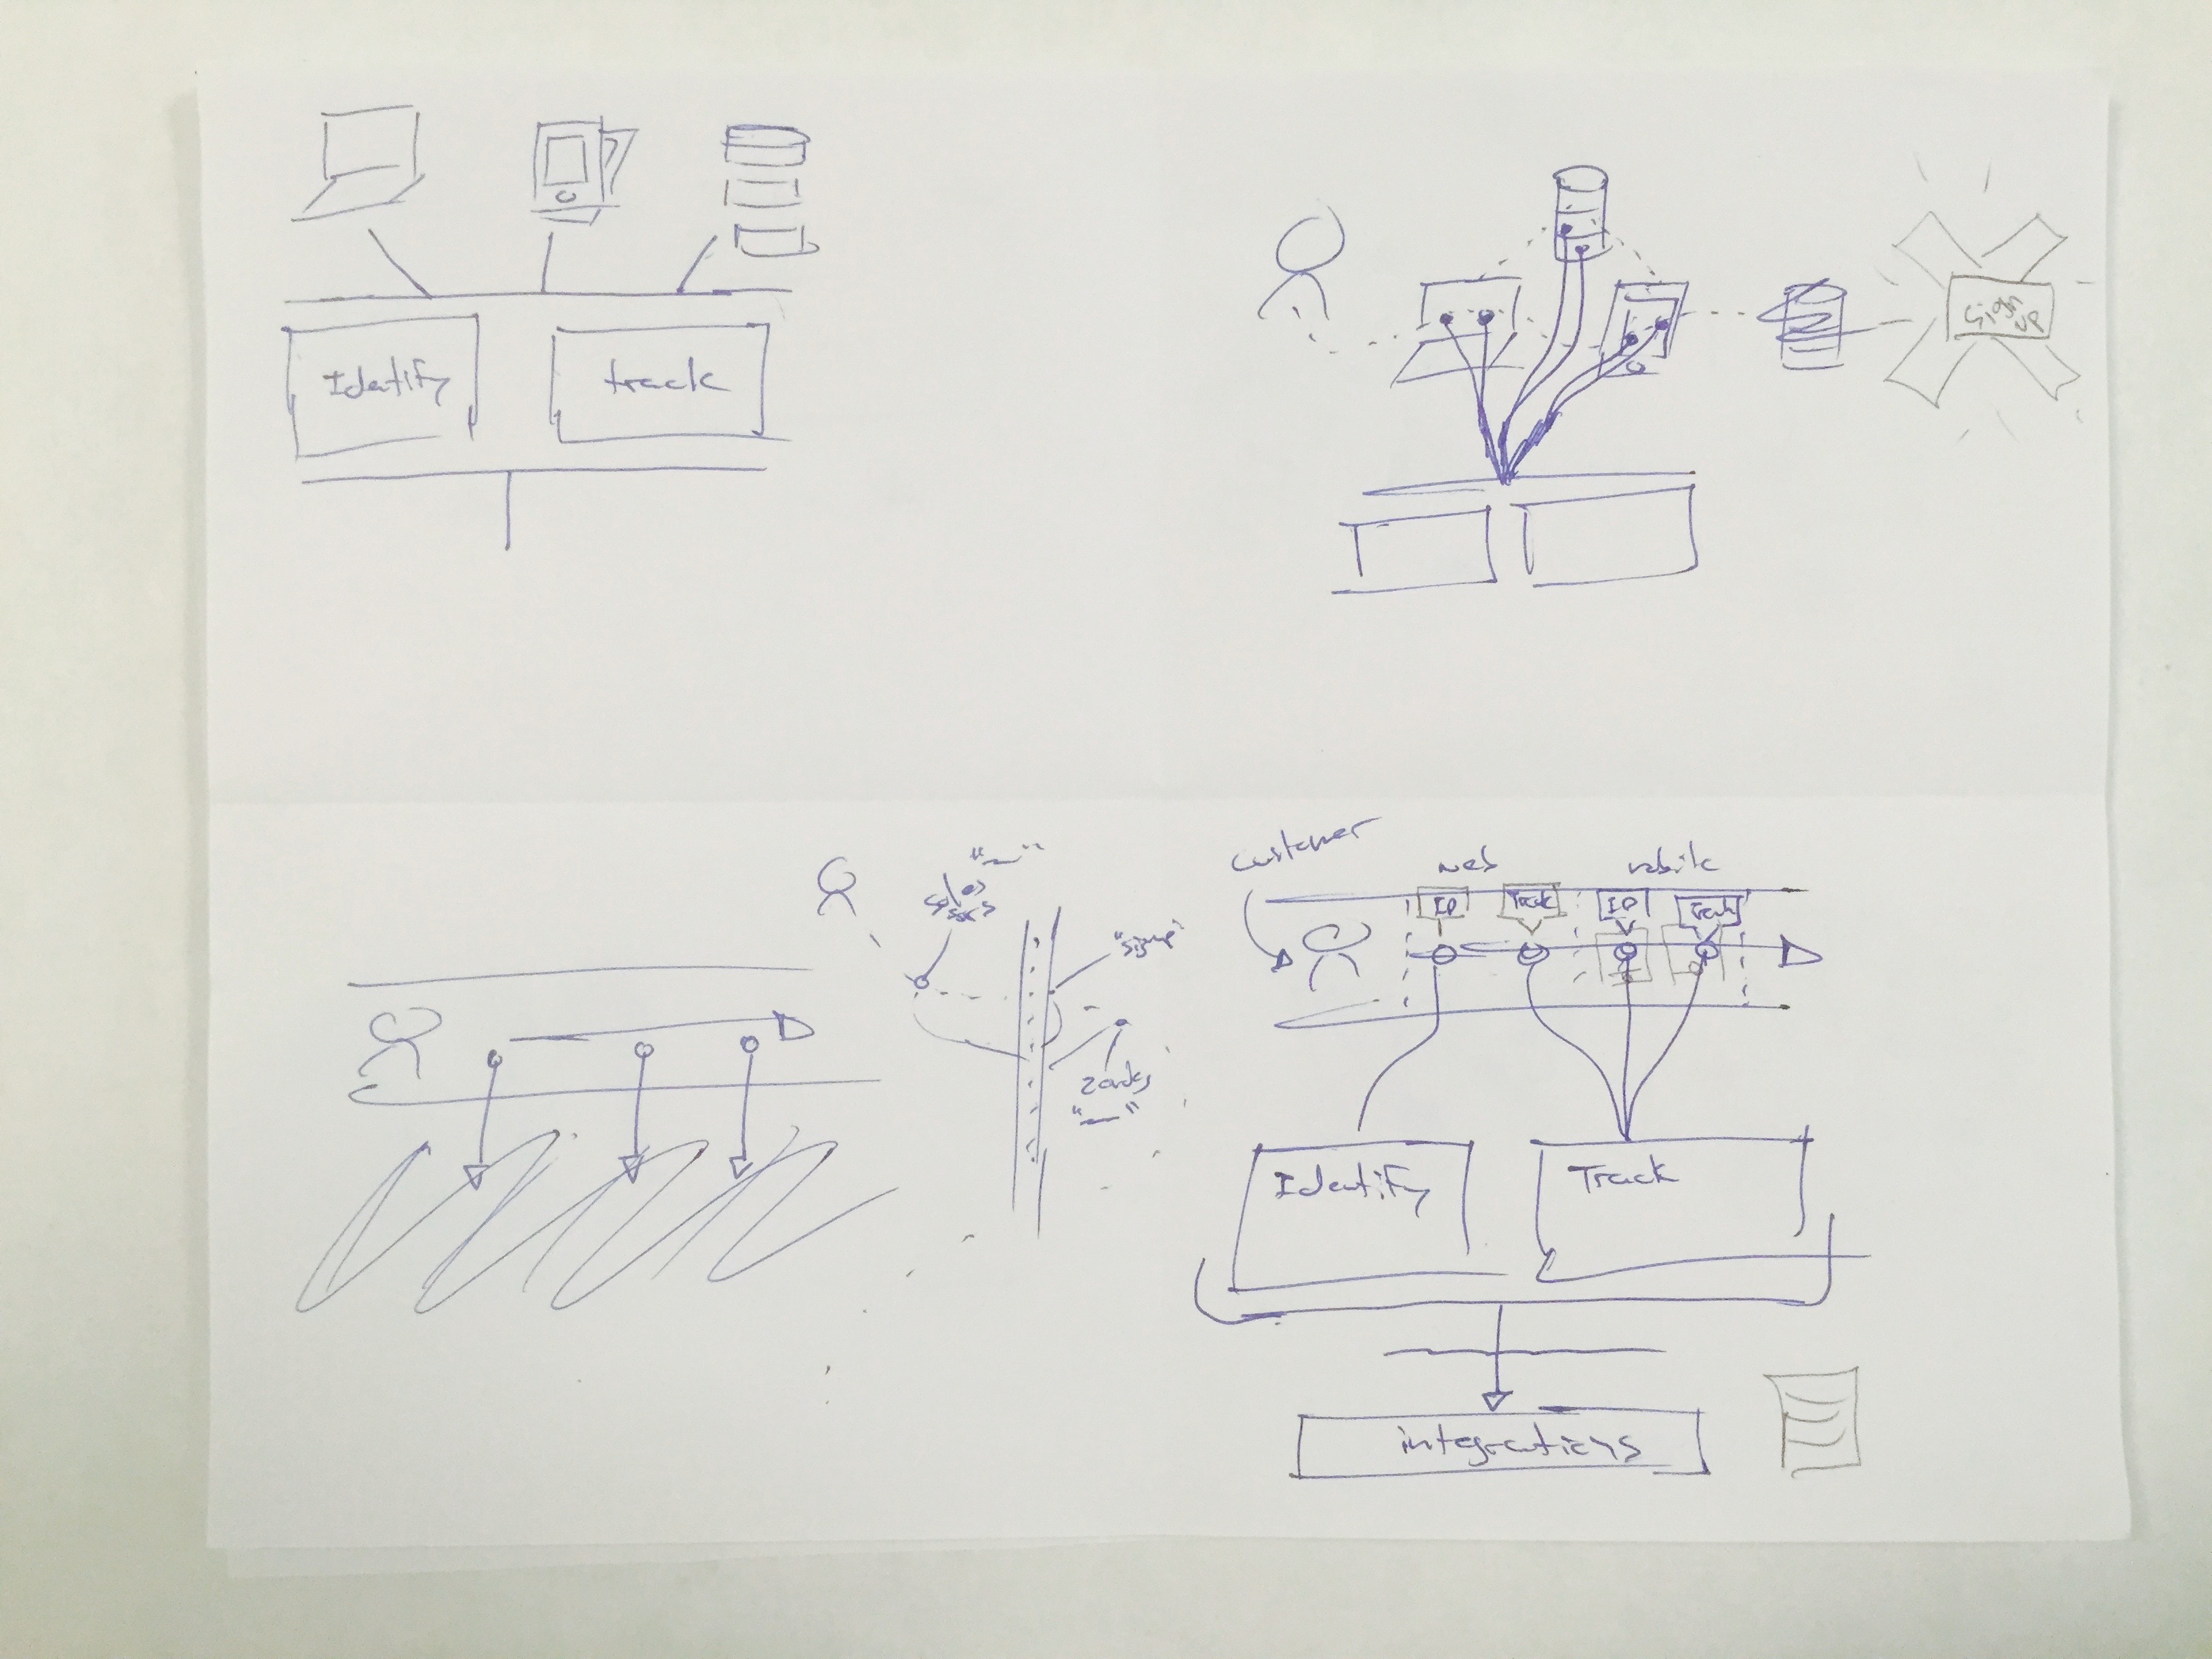 Identify
track
Sign
up
sales
"signup"
Customer
web
mobile
ID
Track
ID
Track
Identify
Track
integrations